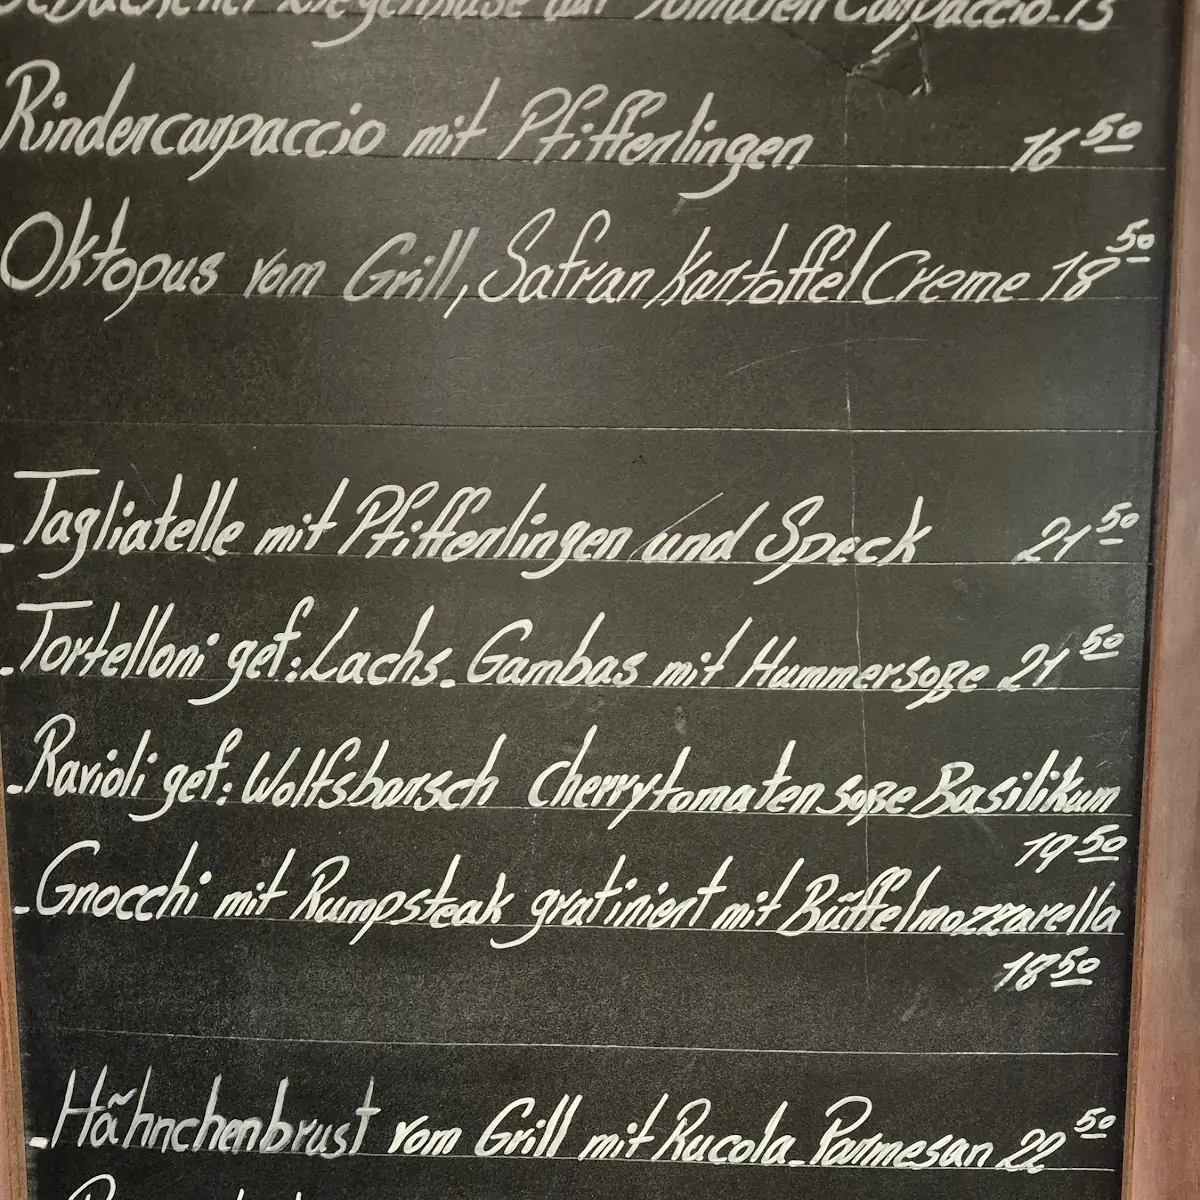 Gebackener Ziegenkäse auf Tomaten Carpaccio-13
Rindercarpaccio mit Pfifferlingen 16 50
Oktopus vom Grill, Safran Kartoffel Creme 18 50
-Tagliatelle mit Pfifferlingen und Speck 21 50
-Tortelloni gef: Lachs-Gambas mit Hummersoße 21 50
-Ravioli gef: Wolfsbarsch Cherrytomatensoße Basilikum
19 50
-Gnocchi mit Rumpsteak gratiniert mit Büffelmozzarella
18 50
-Hähnchenbrust vom Grill mit Rucola-Parmesan 22 50